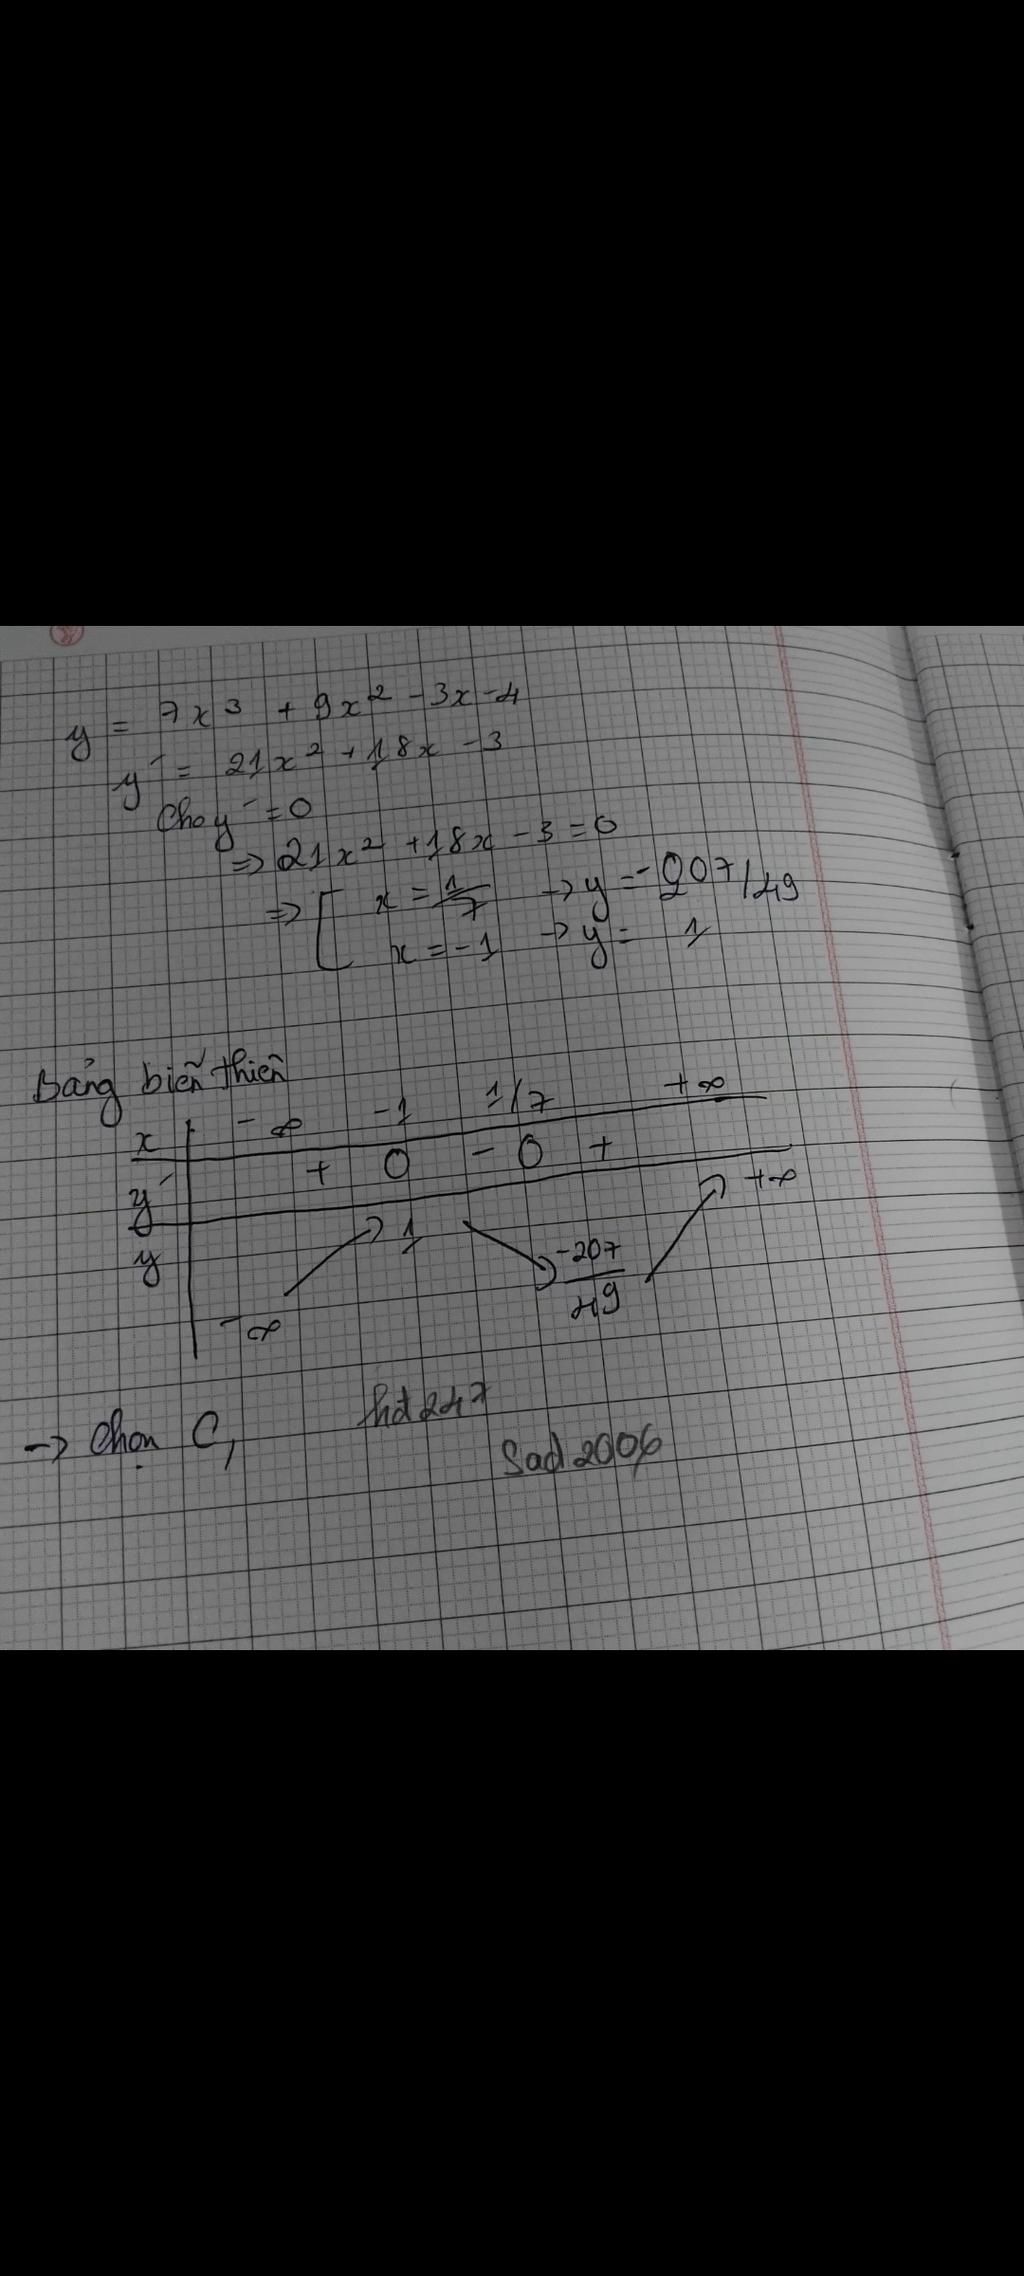 y = 7x³ + 9x² - 3x - 4
y' = 21x² + 18x - 3
Cho y' = 0
=> 21x² + 18x - 3 = 0
=> [ x = 1/7 -> y = -207/49
x = -1 -> y = 1
Bảng biến thiên
x | -∞ -1 1/7 +∞
y' | + 0 - 0 +
y | -∞ ↗ 1 ↘ -207/49 ↗ +∞
-> Chọn C,
thd247
Sad2006